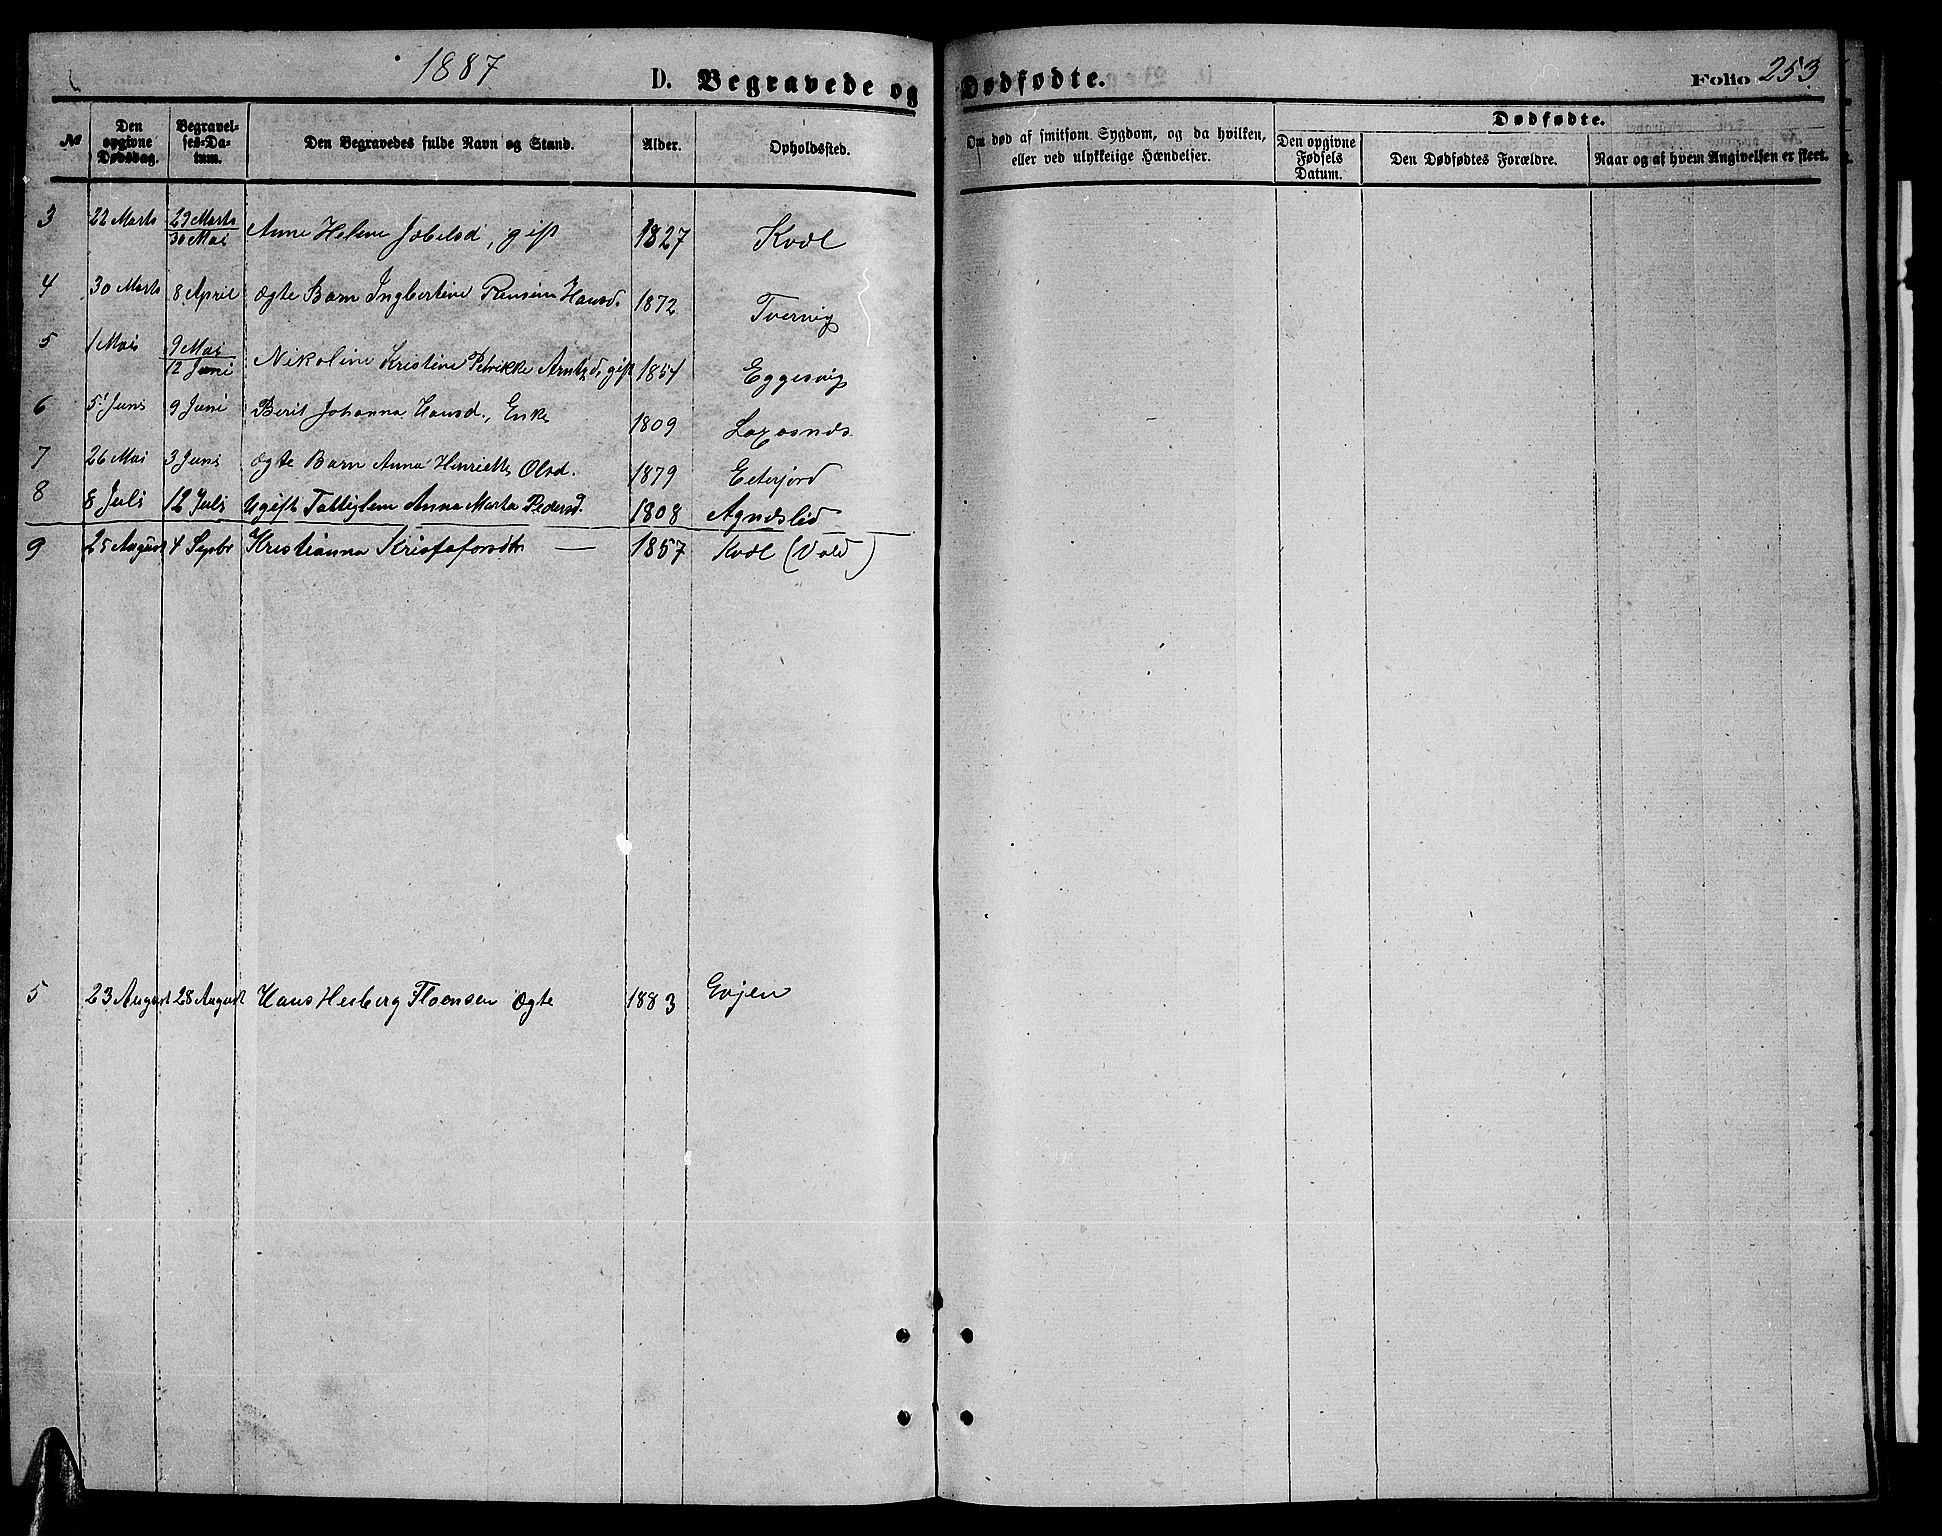 1887 D. Begravede og Dødfødte. Folio 253
№ Den opgivne Dødsdag. Begravelses-Datum. Den Begravedes fulde Navn og Stand. Alder. Opholdssted. Om død af smitsom Sygdom, og da hvilken, eller ved ulykkelige Hændelser. Dødfødte. Den opgivne Fødsels Datum. Den Dødfødtes Forældre. Naar og af hvem Angivelsen er skeet.
3 22 Marts 29 Marts 30 Mai Anne Helene Jobelsd, gift 1827 Kvæl
4 30 Marts 8 April Ægte Barn Ingbertine Hansd. 1872 Tvervig
5 1 Mai 9 Mai 12 Juni Nikoline Kristine Petrikke Arntzd, gift 1854 Eggesvig
6 5 Juni 9 Juni Berit Johanna Hansd., Enke 1809 Laxesnæs
7 26 Mai 3 Juni Ægte Barn Anna Henriette Olsd. 1879 Eterfjord
8 8 Juli 12 Juli Ugift Fattiglem Anna Marta Pedersd. 1808 Agnæslid
9 25 August 4 Sepbr Kristianna Kristofersdtr — 1857 Kvæl (Vold)
5 23 August 28 August Hans Hesberg Floensen Ægte 1883 Evjen